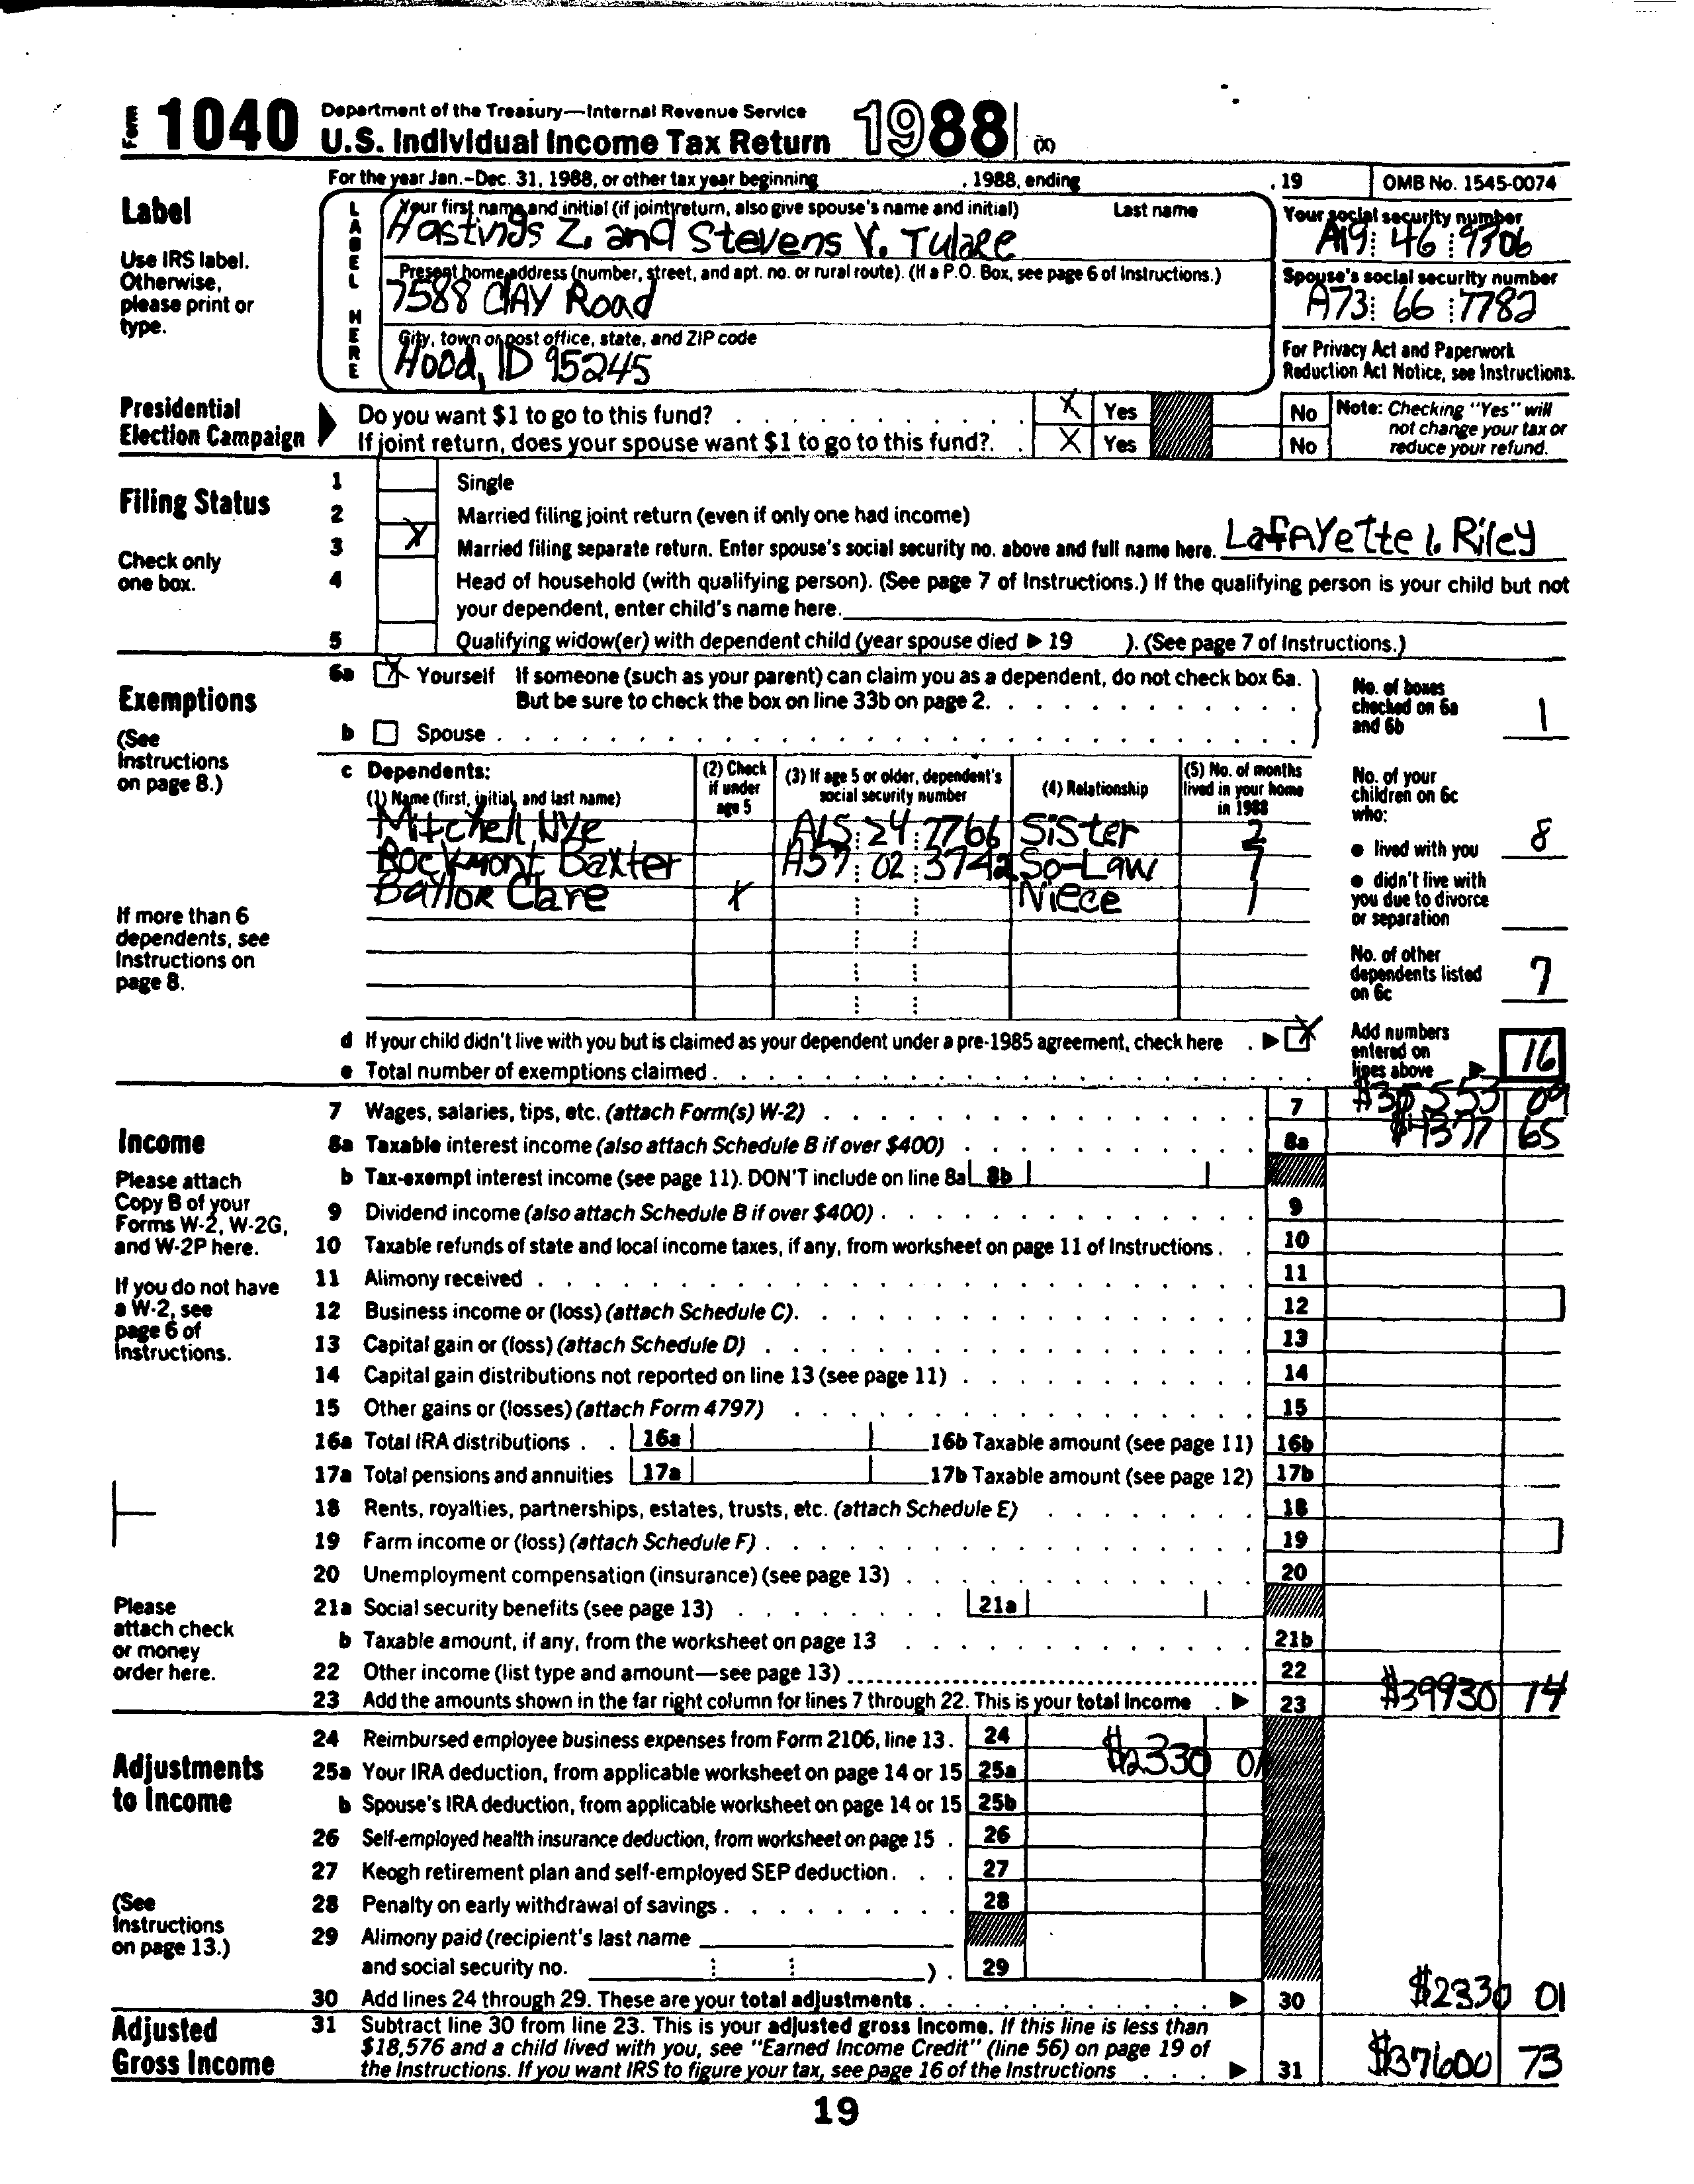 Form 1040 Department of the Treasury—Internal Revenue Service
U.S. Individual Income Tax Return 1988 (X)
For the year Jan.–Dec. 31, 1988, or other tax year beginning , 1988, ending , 19 OMB No. 1545-0074
Label
Use IRS label.
Otherwise,
please print or
type.
LABEL HERE
Your first name and initial (if joint return, also give spouse's name and initial) Last name
Hastings Z. and Stevens Y. Tulare
Your social security number
A19 46 9306
Present home address (number, street, and apt. no. or rural route). (If a P.O. Box, see page 6 of Instructions.)
7588 ClAY Road
Spouse's social security number
A73 66 7782
City, town or post office, state, and ZIP code
Hood, ID 95245
For Privacy Act and Paperwork
Reduction Act Notice, see Instructions.
Presidential
Election Campaign
Do you want $1 to go to this fund? X Yes No
If joint return, does your spouse want $1 to go to this fund? X Yes No
Note: Checking "Yes" will
not change your tax or
reduce your refund.
Filing Status
Check only
one box.
1 Single
2 Married filing joint return (even if only one had income)
3 X Married filing separate return. Enter spouse's social security no. above and full name here. LafAYette l. Riley
4 Head of household (with qualifying person). (See page 7 of Instructions.) If the qualifying person is your child but not
your dependent, enter child's name here.
5 Qualifying widow(er) with dependent child (year spouse died ▶ 19 ). (See page 7 of Instructions.)
Exemptions
(See
Instructions
on page 8.)
6a X Yourself If someone (such as your parent) can claim you as a dependent, do not check box 6a.
But be sure to check the box on line 33b on page 2.
b Spouse
No. of boxes
checked on 6a
and 6b 1
c Dependents:
(1) Name (first, initial, and last name)
(2) Check
if under
age 5
(3) If age 5 or older, dependent's
social security number
(4) Relationship
(5) No. of months
lived in your home
in 1988
Mitchell Nye A15 24 7766 Sister 2
Rockmont Baxter A57 02 3742 So-Law 7
Baylor Clare X Niece 1
No. of your
children on 6c
who:
● lived with you 8
● didn't live with
you due to divorce
or separation
No. of other
dependents listed
on 6c 7
If more than 6
dependents, see
Instructions on
page 8.
d If your child didn't live with you but is claimed as your dependent under a pre-1985 agreement, check here ▶ X
e Total number of exemptions claimed
Add numbers
entered on
lines above ▶ 16
Income
Please attach
Copy B of your
Forms W-2, W-2G,
and W-2P here.
If you do not have
a W-2, see
page 6 of
Instructions.
Please
attach check
or money
order here.
7 Wages, salaries, tips, etc. (attach Form(s) W-2) 7 $35553 09
8a Taxable interest income (also attach Schedule B if over $400) 8a $4377 65
b Tax-exempt interest income (see page 11). DON'T include on line 8a 8b
9 Dividend income (also attach Schedule B if over $400) 9
10 Taxable refunds of state and local income taxes, if any, from worksheet on page 11 of Instructions 10
11 Alimony received 11
12 Business income or (loss) (attach Schedule C) 12
13 Capital gain or (loss) (attach Schedule D) 13
14 Capital gain distributions not reported on line 13 (see page 11) 14
15 Other gains or (losses) (attach Form 4797) 15
16a Total IRA distributions 16a 16b Taxable amount (see page 11) 16b
17a Total pensions and annuities 17a 17b Taxable amount (see page 12) 17b
18 Rents, royalties, partnerships, estates, trusts, etc. (attach Schedule E) 18
19 Farm income or (loss) (attach Schedule F) 19
20 Unemployment compensation (insurance) (see page 13) 20
21a Social security benefits (see page 13) 21a
b Taxable amount, if any, from the worksheet on page 13 21b
22 Other income (list type and amount—see page 13) 22
23 Add the amounts shown in the far right column for lines 7 through 22. This is your total income ▶ 23 $39930 74
Adjustments
to Income
(See
Instructions
on page 13.)
24 Reimbursed employee business expenses from Form 2106, line 13. 24
25a Your IRA deduction, from applicable worksheet on page 14 or 15 25a $2330 01
b Spouse's IRA deduction, from applicable worksheet on page 14 or 15 25b
26 Self-employed health insurance deduction, from worksheet on page 15 26
27 Keogh retirement plan and self-employed SEP deduction 27
28 Penalty on early withdrawal of savings 28
29 Alimony paid (recipient's last name
and social security no. ) 29
30 Add lines 24 through 29. These are your total adjustments ▶ 30 $2330 01
Adjusted
Gross Income
31 Subtract line 30 from line 23. This is your adjusted gross income. If this line is less than
$18,576 and a child lived with you, see "Earned Income Credit" (line 56) on page 19 of
the Instructions. If you want IRS to figure your tax, see page 16 of the Instructions ▶ 31 $37600 73
19